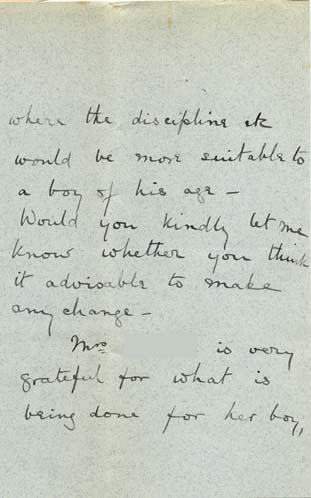 where the discipline etc
would be more suitable to
a boy of his age –
Would you kindly let me
know whether you think
it advisable to make
any change –
Mrs is very
grateful for what is
being done for her boy,